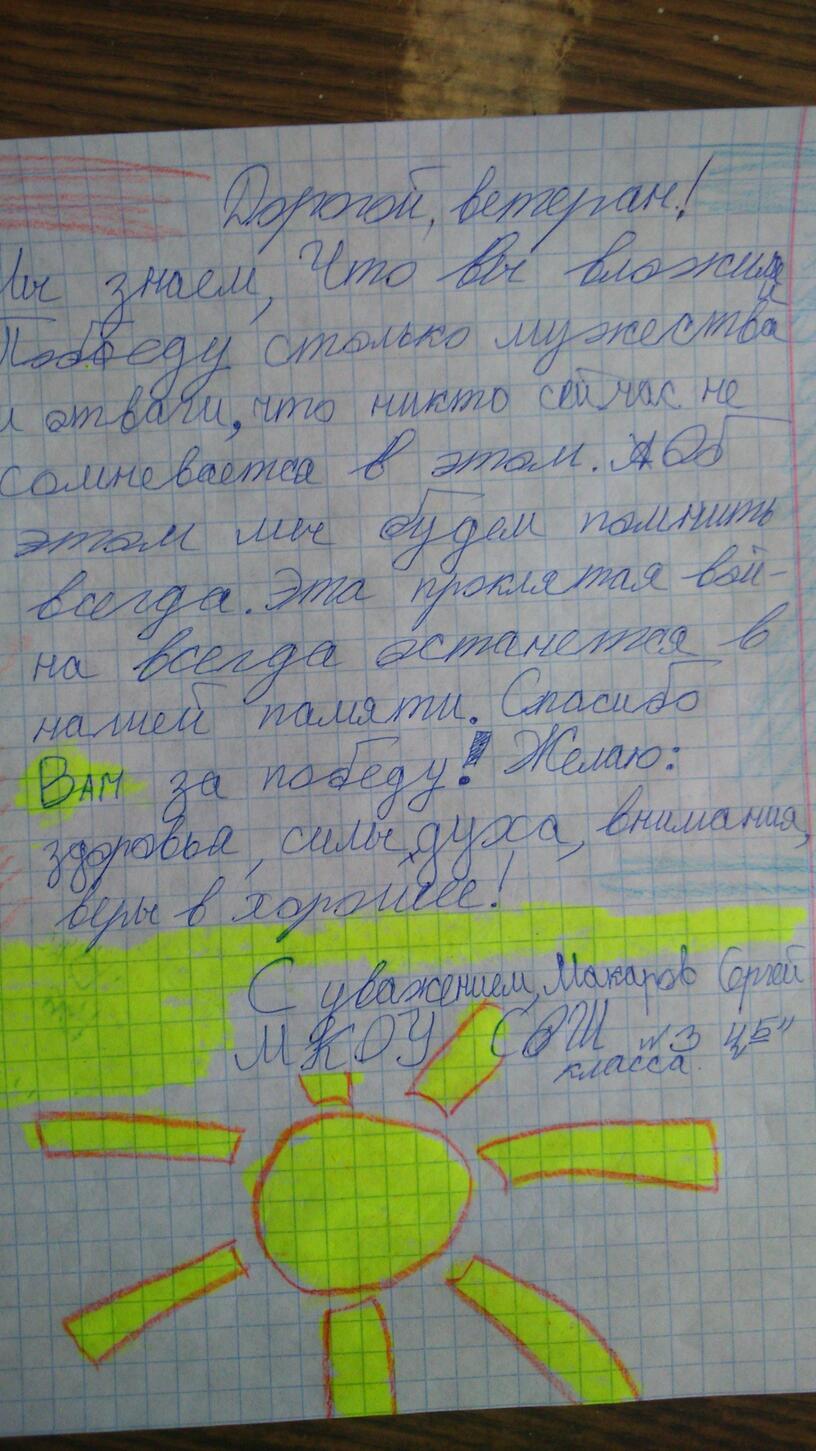 Дорогой, ветеран!
Мы знаем, Что вы вложили
Победу столько мужества
и отваги, что никто сейчас не
сомневается в этом. Об
этом мы будем помнить
всегда. Эта проклятая вой-
на всегда останется в
нашей памяти. Спасибо
Вам за победу! Желаю:
здоровья, силы духа, внимания,
веры в хорошее!
С уважением, Макаров Сергей
МКОУ СОШ №3
класса.